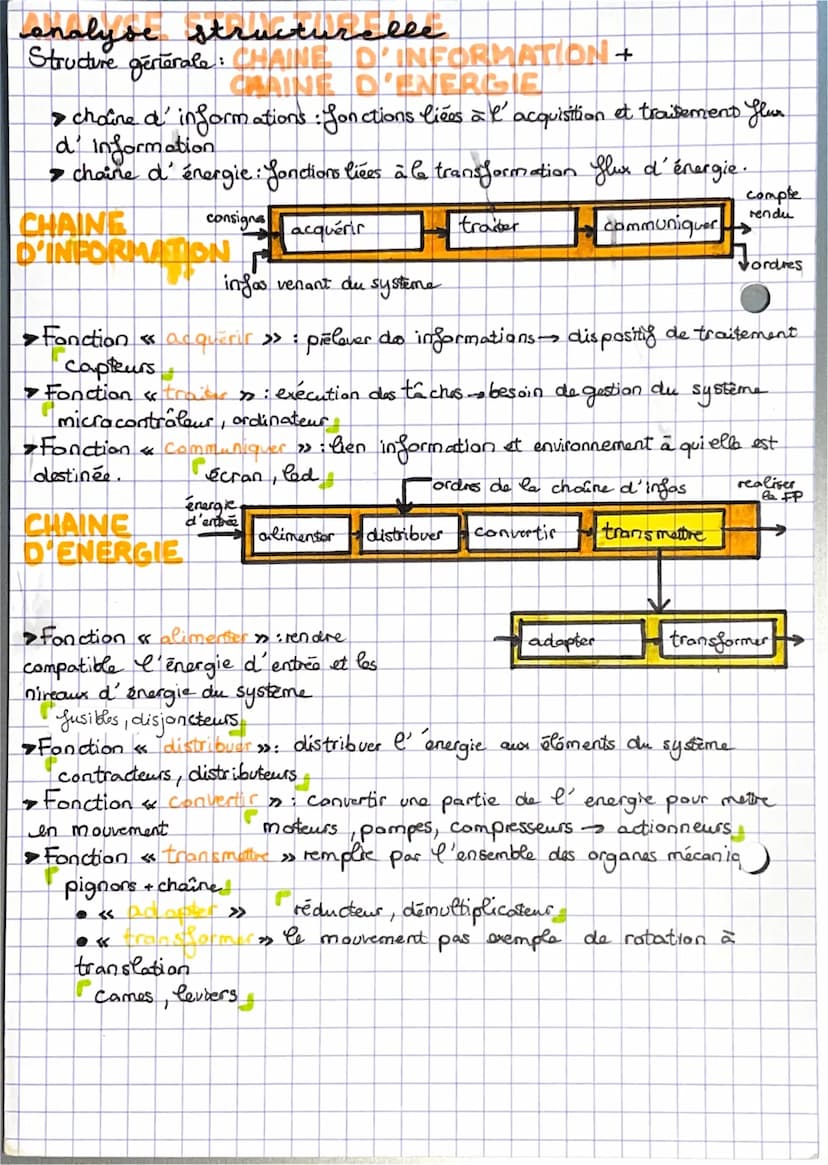 analyse structurelle
Structure générale : CHAINE D'INFORMATION +
CHAINE D'ENERGIE
➤ chaîne d'informations : fonctions liées à l'acquisition et traitement flux
d'information
➤ chaîne d'énergie : fonctions liées à la transformation flux d'énergie.
CHAINE
D'INFORMATION
consigne
acquérir
traiter
communiquer
compte
rendu
ordres
infos venant du système
➤ Fonction « acquérir » : prélever des informations → dispositif de traitement
capteurs
➤ Fonction « traiter » : exécution des tâches → besoin de gestion du système
microcontrôleur, ordinateur
➤ Fonction « communiquer » : lien information et environnement à qui elle est
destinée.
écran, led
CHAINE
D'ENERGIE
énergie
d'entrée
ordres de la chaîne d'infos
realiser
la FP
alimenter
distribuer
convertir
transmettre
adapter
transformer
➤ Fonction « alimenter » : rendre
compatible l'énergie d'entrée et les
niveaux d'énergie du système
fusibles, disjoncteurs
➤ Fonction « distribuer » : distribuer l'énergie aux éléments du système
contracteurs, distributeurs
➤ Fonction « convertir » : convertir une partie de l'energie pour mettre
en mouvement
moteurs, pompes, compresseurs → actionneurs
➤ Fonction « transmettre » remplie par l'ensemble des organes mécaniq
pignors + chaîne
• « adapter » réducteur, démultiplicateur
• « transformer » le mouvement pas exemple de rotation à
translation
cames, leviers